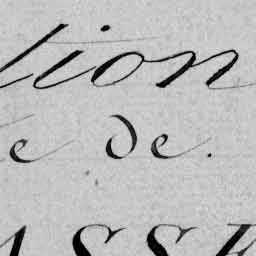 tion
e de.
ASSE